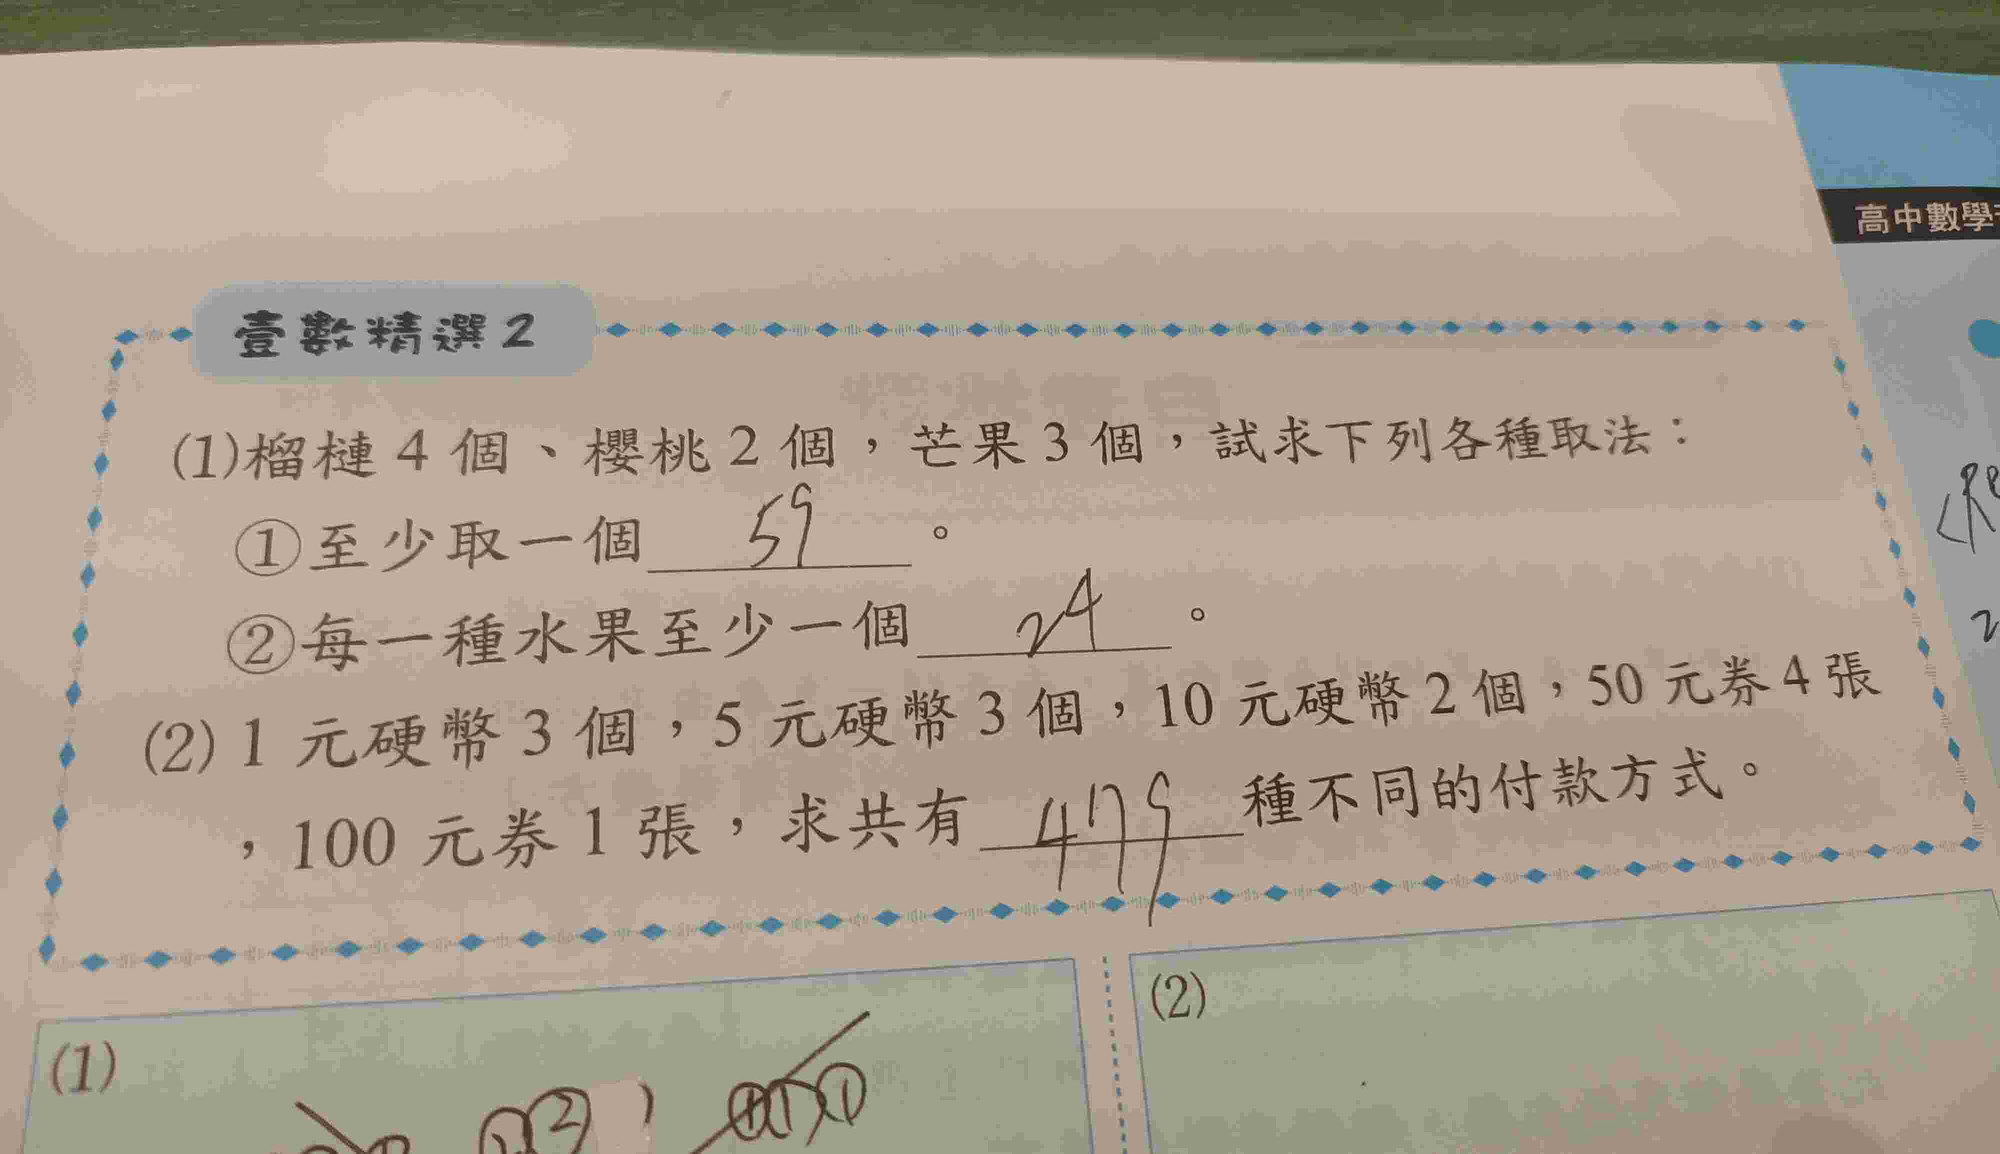 高中數學
壹數精選2
(1)榴槤4個、櫻桃2個，芒果3個，試求下列各種取法：
①至少取一個 59 。
②每一種水果至少一個 24 。
(2) 1元硬幣3個，5元硬幣3個，10元硬幣2個，50元券4張
，100元券1張，求共有 479 種不同的付款方式。
(1)
(2)